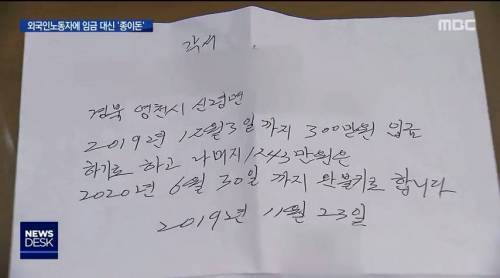 외국인노동자에 임금 대신 '종이돈'
mbc
각서
경북 영천시 신령면
2019년 12월 3일까지 300만원 입금
하기로 하고 나머지 1243만원은
2020년 6월 30일까지 완불키로 합니다
2019년 11월 23일
NEWS
DESK